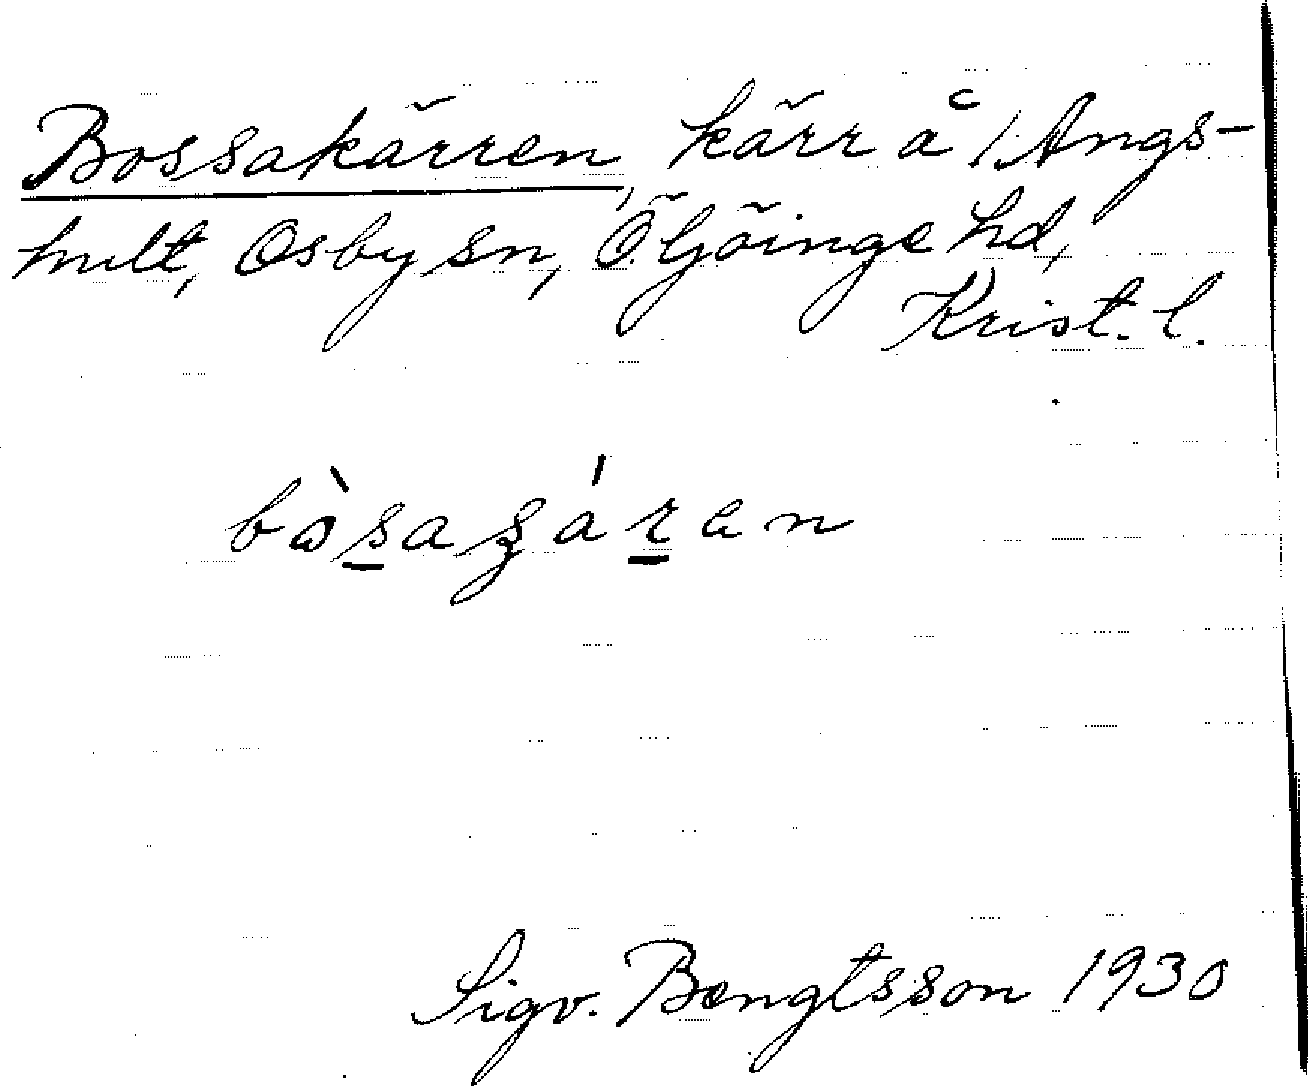 Bossakärren, kärr å 1 Angs-
hult, Osby sn, Ö. Göinge hd,
Krist. l.
Sigv. Bengtsson 1930